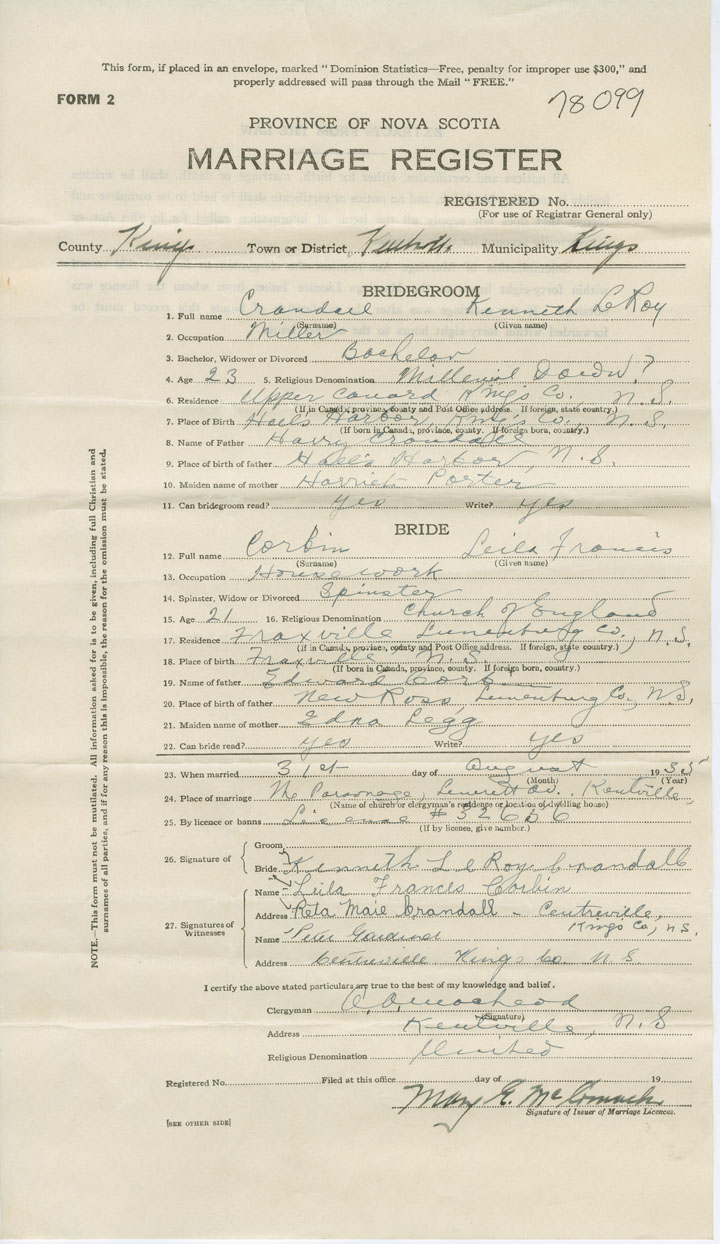 This form, if placed in an envelope, marked "Dominion Statistics—Free, penalty for improper use $300," and
properly addressed will pass through the Mail "FREE."
FORM 2
78099
PROVINCE OF NOVA SCOTIA
MARRIAGE REGISTER
REGISTERED No.
(For use of Registrar General only)
County Kings Town or District Kentville Municipality Kings
BRIDEGROOM
1. Full name Crandall Kenneth LeRoy
(Surname) (Given name)
2. Occupation Miller
3. Bachelor, Widower or Divorced Bachelor
4. Age 23 5. Religious Denomination Millenial Dawn?
6. Residence Upper Canard Kings Co. N.S.
(If in Canada, province, county and Post Office address. If foreign, state country.)
7. Place of Birth Hall's Harbor, Kings Co., N.S.
(If born in Canada, province, county. If foreign born, country.)
8. Name of Father Harry Crandall
9. Place of birth of father Hall's Harbor, N.S.
10. Maiden name of mother Harriet Porter
11. Can bridegroom read? yes Write? yes
BRIDE
12. Full name Corbin Leila Francis
(Surname) (Given name)
13. Occupation Housework
14. Spinster, Widow or Divorced Spinster
15. Age 21 16. Religious Denomination Church of England
17. Residence Fraxville Lunenburg Co., N.S.
(If in Canada, province, county and Post Office address. If foreign, state country.)
18. Place of birth Fraxville N.S.
(If born in Canada, province, county. If foreign born, country.)
19. Name of father Edward Corb
20. Place of birth of father New Ross, Lunenburg Co., N.S.
21. Maiden name of mother Edna Legg
22. Can bride read? yes Write? yes
23. When married 31st day of August 1935
(Month) (Year)
24. Place of marriage The Parsonage, Kentville
(Name of church or clergyman's residence or location of dwelling house)
25. By licence or banns License #32636
(If by licence, give number.)
26. Signature of Groom
Bride Kenneth LeRoy Crandall
27. Signatures of Witnesses
Name Leila Francis Corbin
Address Reta Maie Crandall - Centreville, Kings Co, N.S.
Name Peter Gardiner
Address Centreville Kings Co. N.S.
I certify the above stated particulars are true to the best of my knowledge and belief.
Clergyman
(Signature)
Address Kentville, N.S
Religious Denomination United
Registered No. Filed at this office day of 19
Mary E.
Signature of Issuer of Marriage Licences.
[SEE OTHER SIDE]
NOTE.—This form must not be mutilated. All information asked for is to be given, including full Christian and
surnames of all parties, and if for any reason this is impossible, the reason for the omission must be stated.